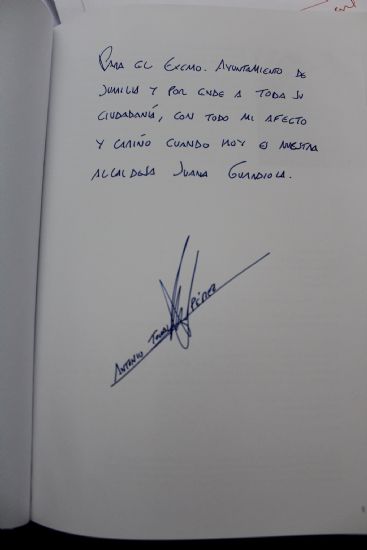 PARA EL EXCMO. AYUNTAMIENTO DE
JUMILLA Y POR ENDE A TODA SU
CIUDADANÍA, CON TODO MI AFECTO
Y CARIÑO CUANDO HOY ES NUESTRA
ALCALDESA JUANA GUARDIOLA.
ANTONIO PÉREZ